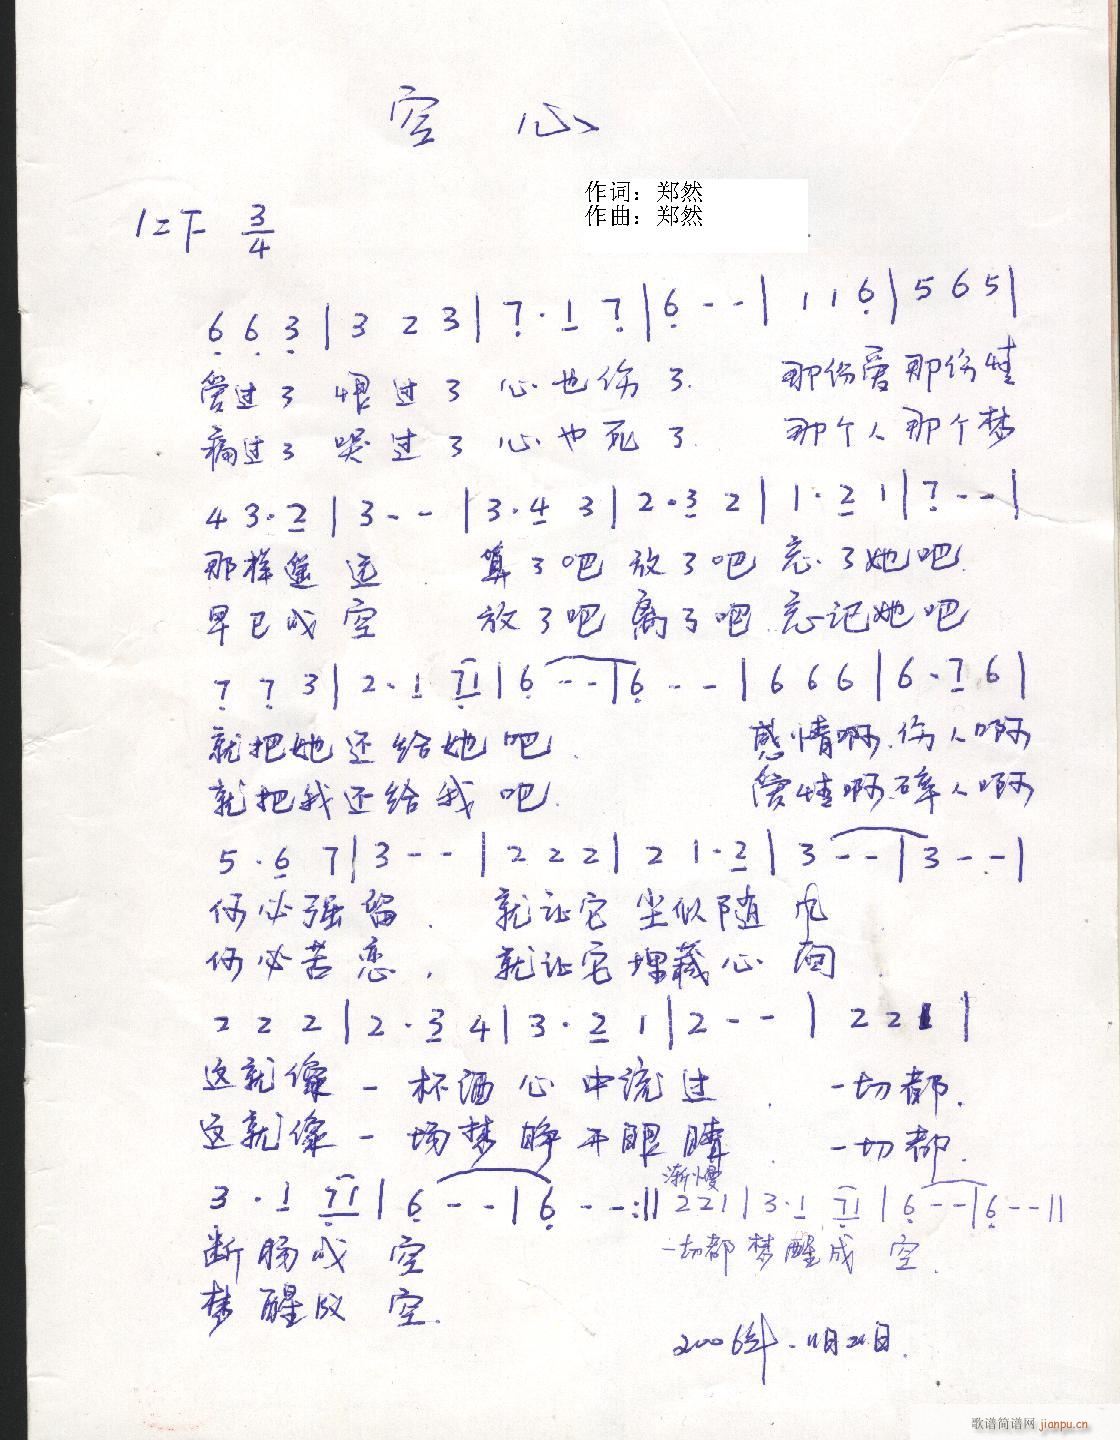 空 心
作词：郑然
作曲：郑然
1=F 3/4
6 6 3 | 3 2 3 | 7 · 1 7 | 6 - - | 1 1 6 | 5 6 5 |
爱过了 恨过了 心也伤了. 那份爱那份情
痛过了 哭过了 心也死了. 那个人那个梦
4 3 · 2 | 3 - - | 3 · 4 3 | 2 · 3 2 | 1 · 2 1 | 7 - - |
那样遥远. 算了吧 放了吧 忘了她吧.
早已成空 放了吧 离了吧 忘记她吧
7 7 3 | 2 · 1 71 | 6 - - | 6 - - | 6 6 6 | 6 · 7 6 |
就把她还给她吧. 感情啊.伤人啊
就把我还给我吧. 爱情啊.碎人啊
5 · 6 7 | 3 - - | 2 2 2 | 2 1 · 2 | 3 - - | 3 - - |
何必强留. 就让它尘似随风
何必苦恋. 就让它埋藏心间.
2 2 2 | 2 · 3 4 | 3 · 2 1 | 2 - - | 2 2 1 |
这就像一杯酒心中流过. 一切都.
这就像一场梦睁开眼睛. 一切都.
渐慢
3 · 1 71 | 6 - - | 6 - - :|| 2 2 1 | 3 · 1 71 | 6 - - | 6 - - ||
断肠成空 一切都梦醒成空.
梦醒成空.
2006年.11月21日.
歌谱简谱网 jianpu.cn